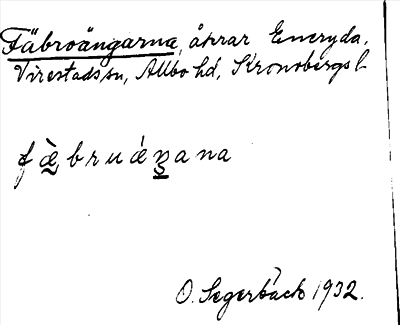 Fäbroängarna, åkrar Eneryda,
Virestads sn, Allbo hd, Kronobergs l.
fæ̀bruáʒana
O. Segerbäck 1932.